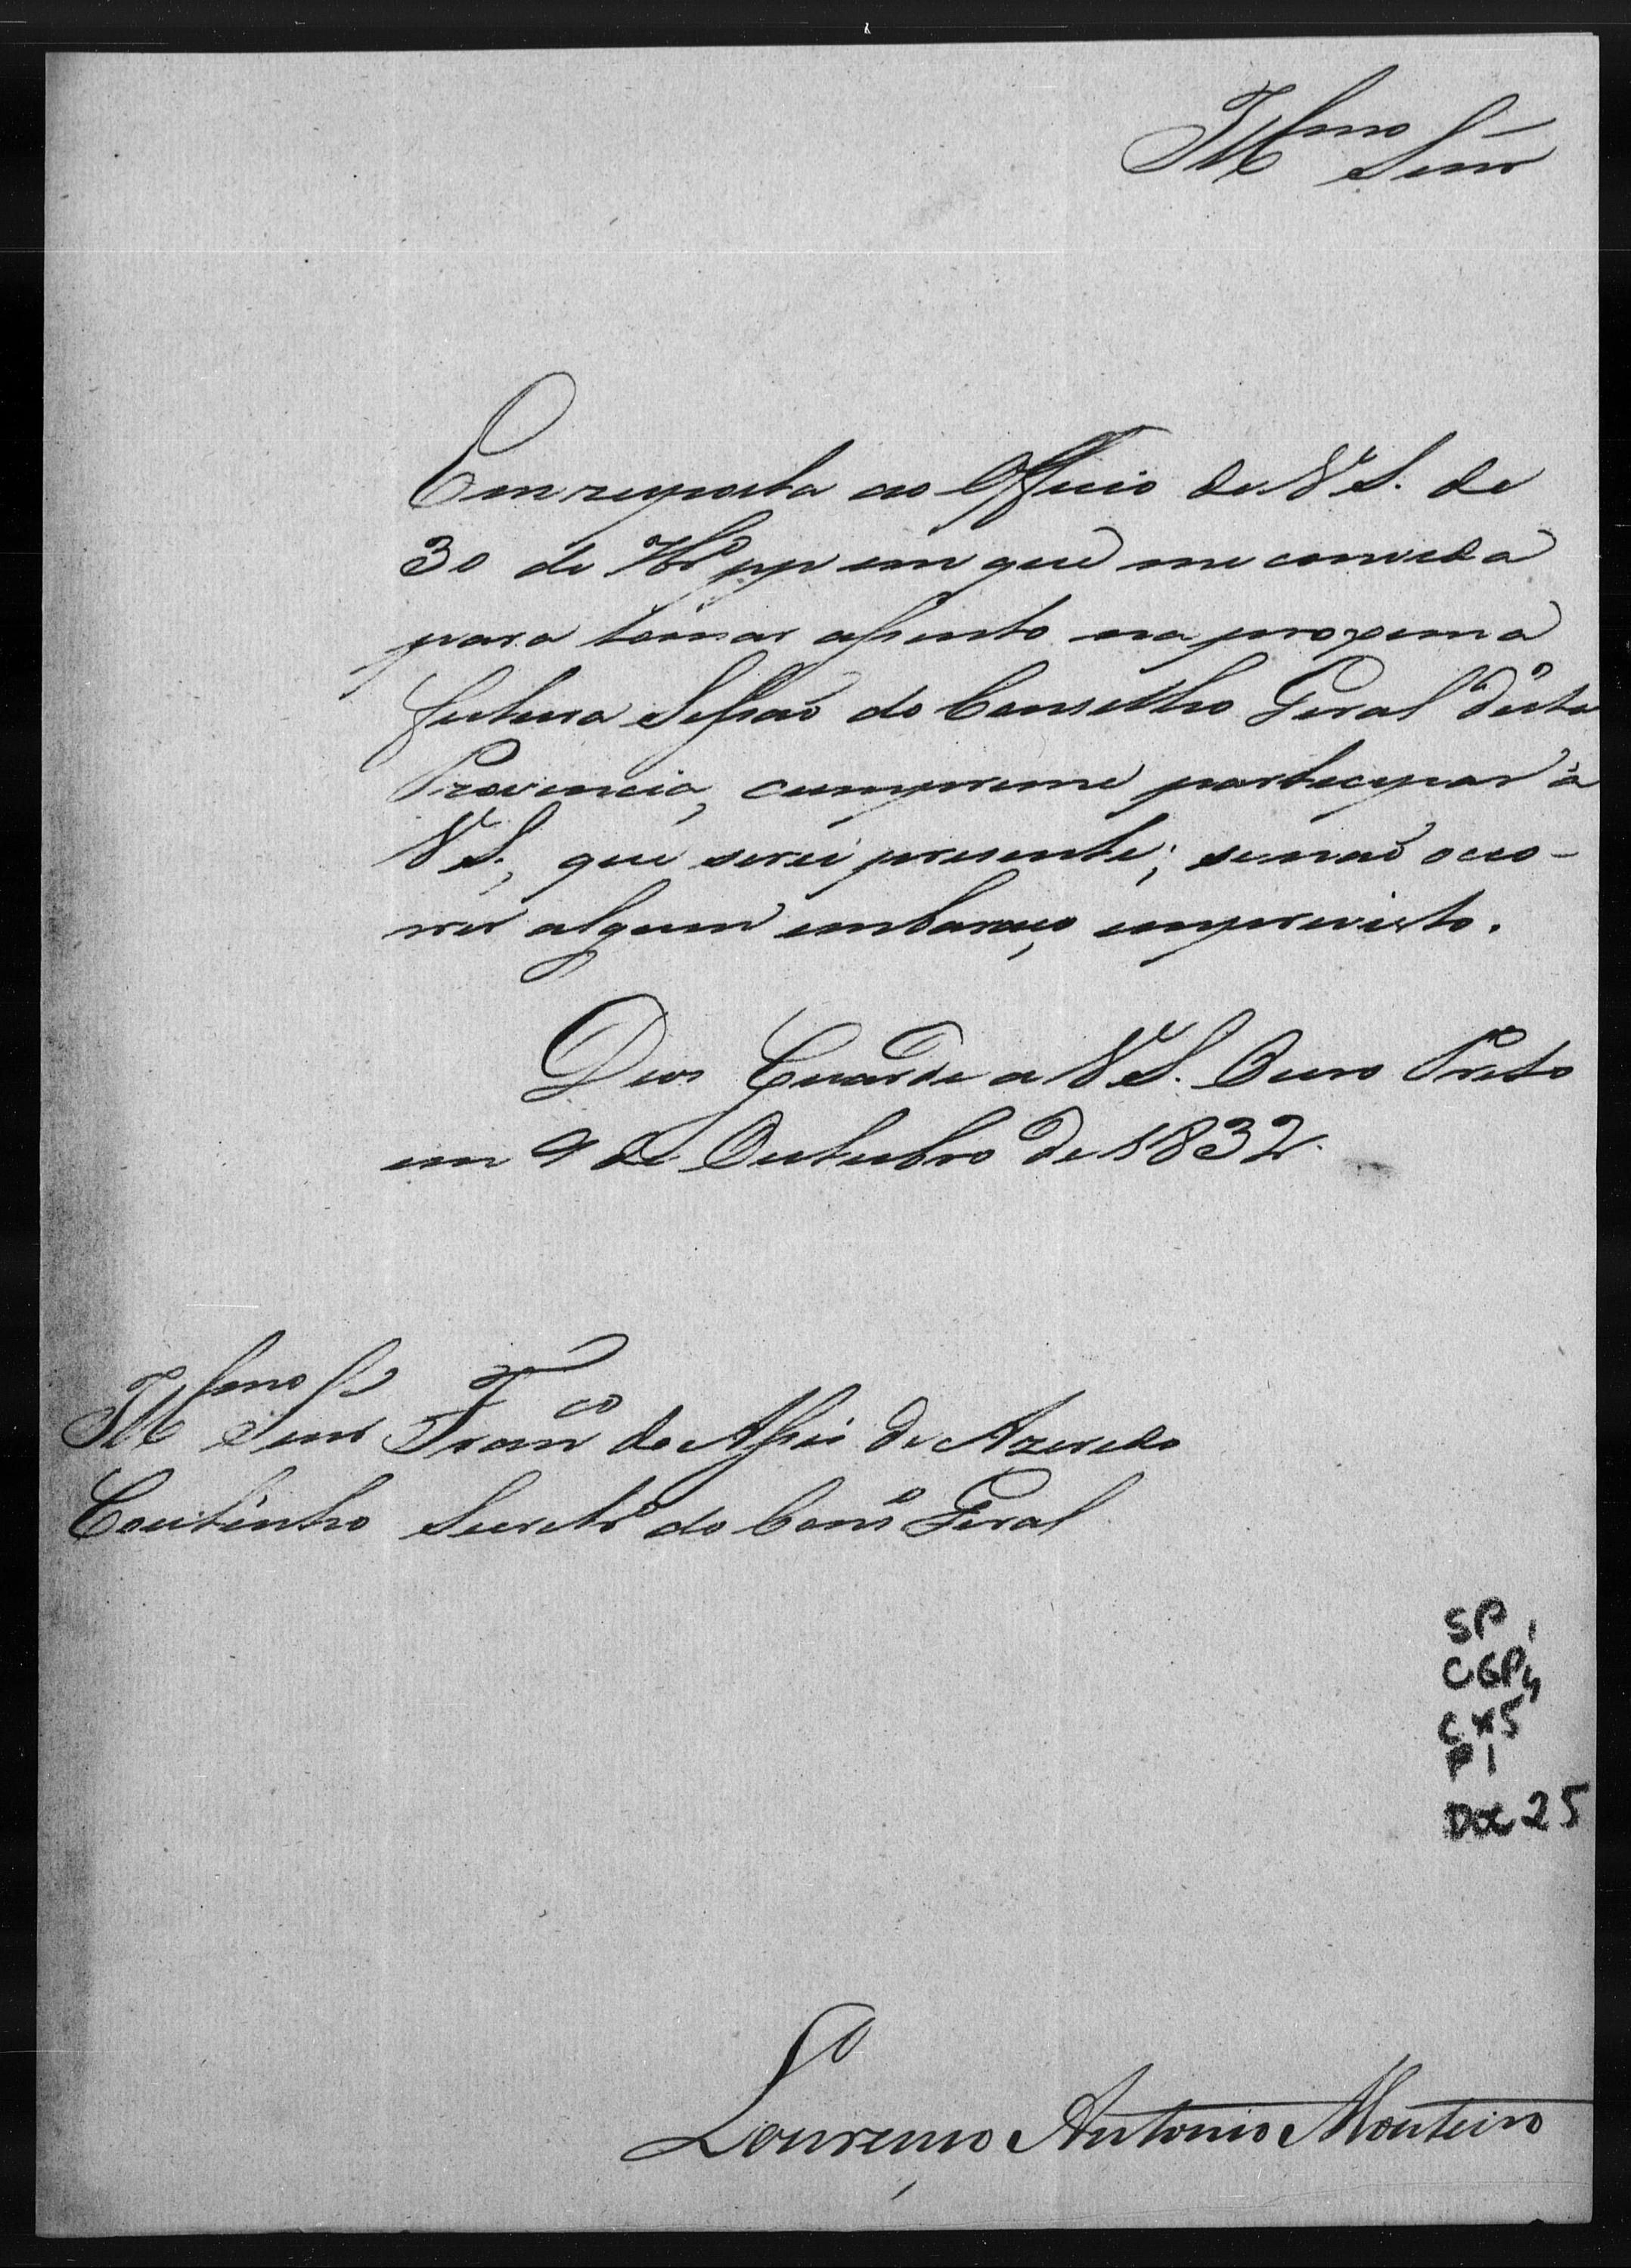 Illmo Senr
Em resposta ao Officio de V S. de
30 de 7bro pp em que me convida
para tomar assento na proxima
futura Sessaõ do Conselho Geral desta
Provincia, cumpreme participar a
V S., que serei presente; se naõ occo-
rrer algum embaraço imprevisto.
Deos Guarde a V S. Ouro Preto
em 9 de Outubro de 1832.
Illmo Senr Franco de Assis de Azeredo
Coutinho Secretro do Conso Geral
SP
CGP1
CX5
P1
Doc 25
Lourenço Antonio Monteiro